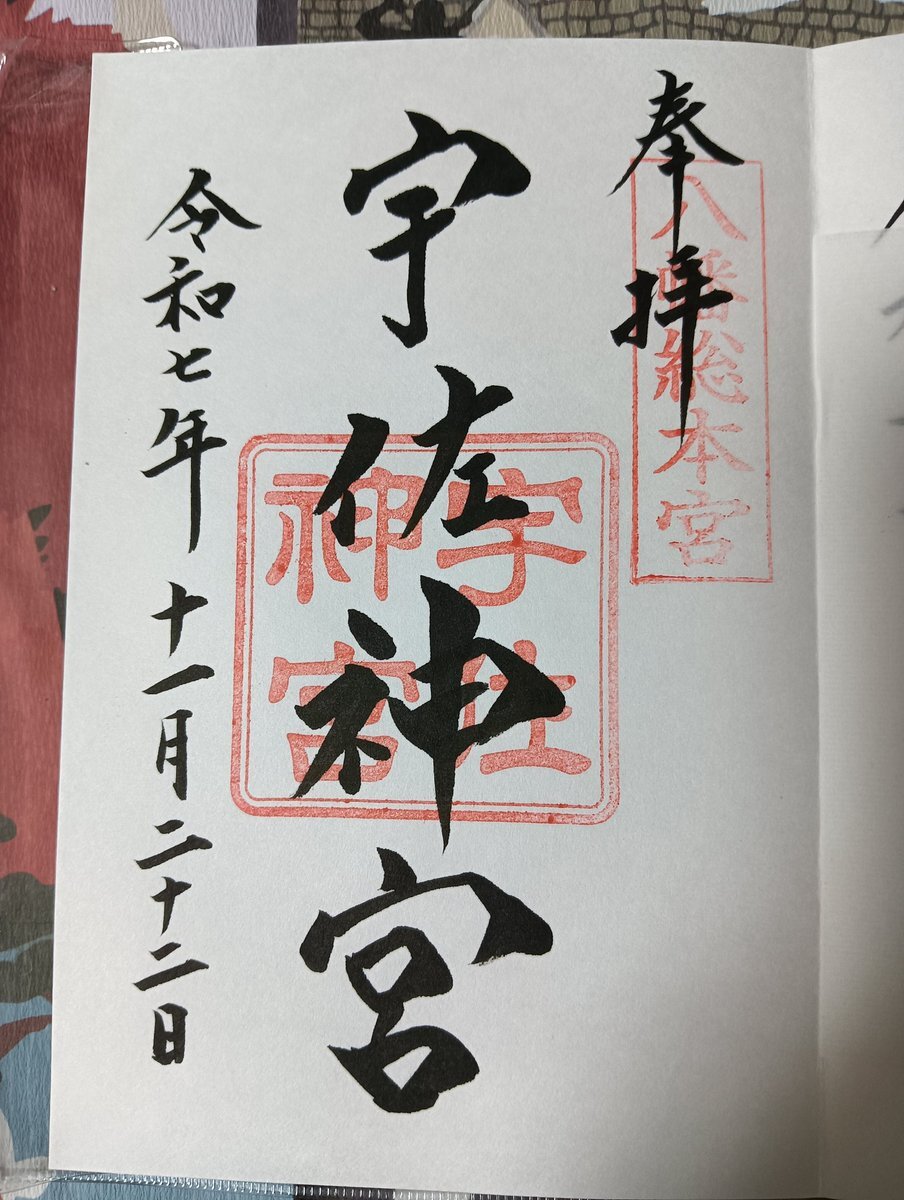 奉拝
八幡総本宮
宇佐神宮
宇佐
神宮
令和七年十一月二十二日